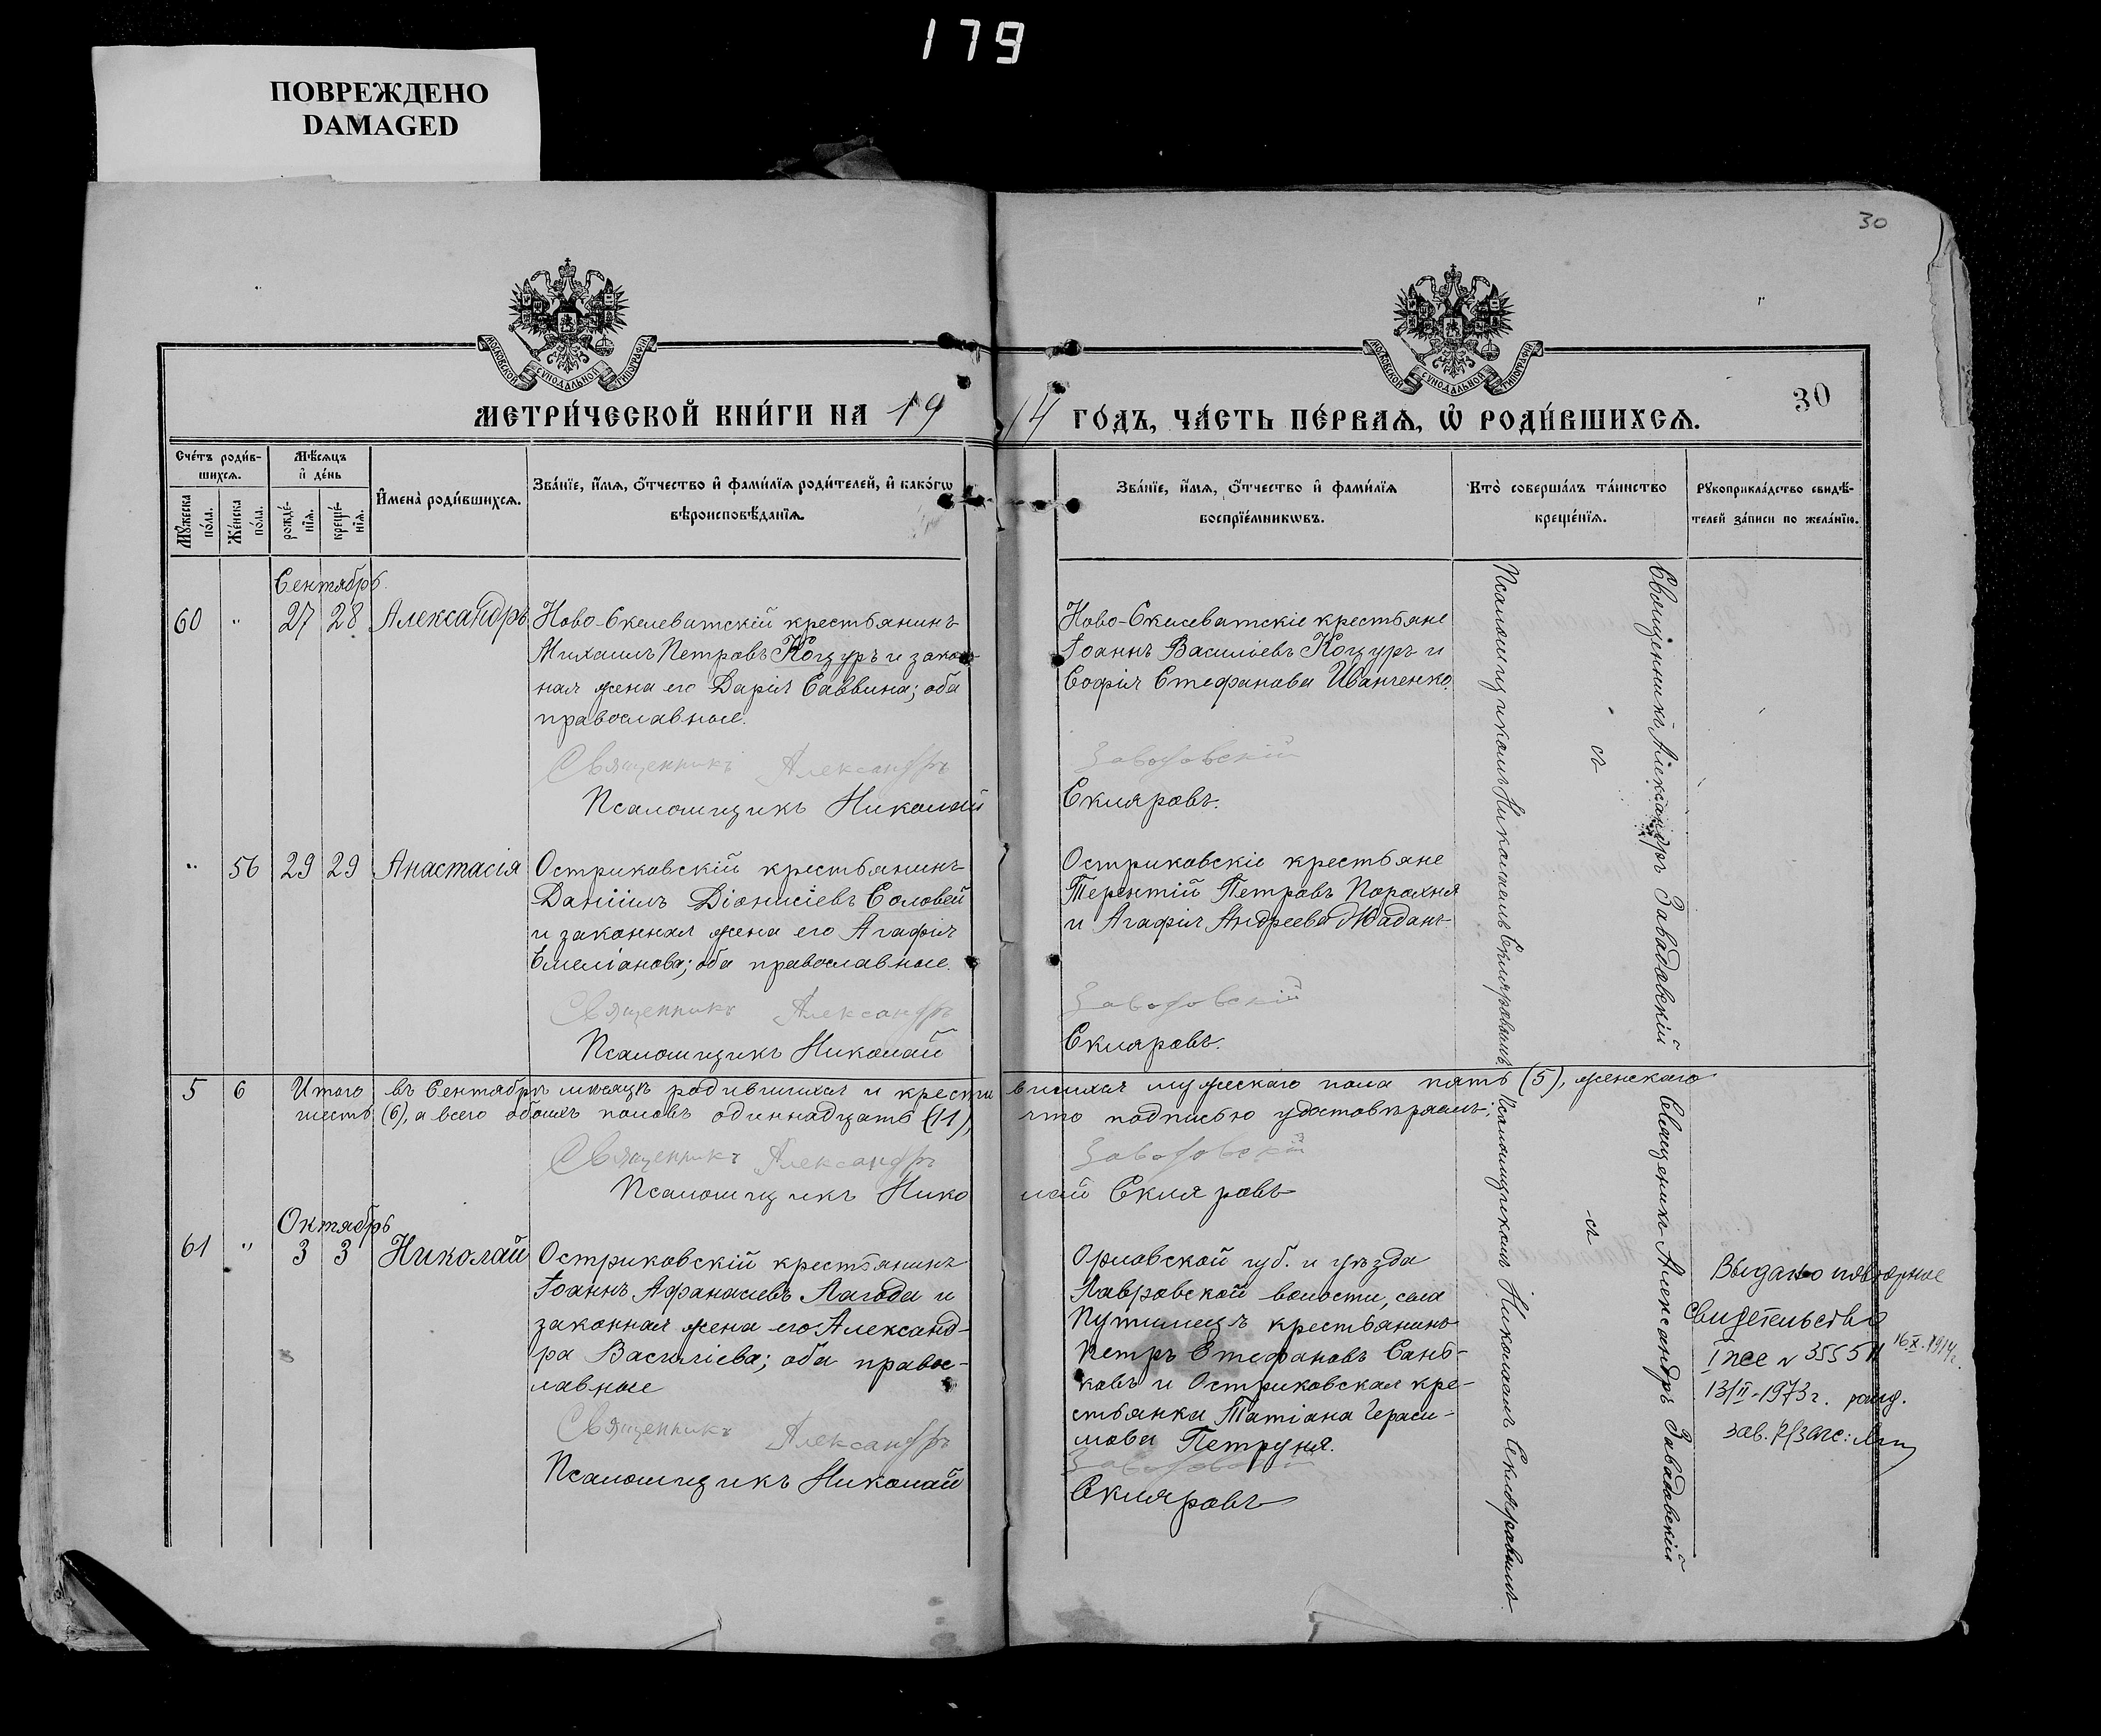 179
ПОВРЕЖДЕНО
DAMAGED
30
МОСКОВСКОЙ СѴНОДАЛЬНОЙ ТИПОГРАФІИ
МОСКОВСКОЙ СѴНОДАЛЬНОЙ ТИПОГРАФІИ
МЕТРИ́ЧЕСКОЙ КНИ́ГИ НА 1914 ГО́ДЪ, ЧА́СТЬ ПЕ́РВАѦ, Ѡ҆ РОДИ́ВШИХСѦ.
30
Сче́тъ роди́в-
шихсѧ.
Мꙋ́жеска по́ла.
Же́нска по́ла.
Мѣ́сѧцъ
и҆ де́нь
рожде́-
нїѧ.
креще́-
нїѧ.
И҆мена̀ роди́вшихсѧ.
Зва́нїе, и҆́мѧ, ѻ҆́тчество и҆ фами́лїѧ роди́телей, и҆ како́гѡ
вѣроисповѣ́данїѧ.
Зва́нїе, и҆́мѧ, ѻ҆́тчество и҆ фами́лїѧ
воспрїе́мникѡвъ.
Кто̀ соверша́лъ та́инство
креще́нїѧ.
Рꙋкоприкла́дство свидѣ́-
телей за́писи по жела́нїю.
Сентябрь.
60 " 27 28 Александръ
Ново-Скелеватскій крестьянинъ
Михаилъ Петровъ Коцуръ и закон-
ная жена его Дарія Саввина; оба
православные.
Священникъ Александръ
Псаломщикъ Николай
Ново-Скелеватскіе крестьяне
Іоаннъ Васильевъ Коцуръ и
Софія Стефанова Иванченко.
Заводовскій
Скляровъ.
Священникъ Александръ Завадовскій
съ
Псаломщикомъ Николаемъ Скляровымъ.
" 56 29 29 Анастасія
Остриковскій крестьянинъ
Даніилъ Діонисіевъ Соловей
и законная жена его Агафія
Емеліанова; оба православные.
Священникъ Александръ
Псаломщикъ Николай
Остриковскіе крестьяне
Терентій Петровъ Порохня
и Агафія Андреева Жаданъ.
Заводовскій
Скляровъ.
5 6 Итого въ Сентябрѣ мѣсяцѣ родившихся и крестившихся мужескаго пола пять (5), женскаго
шесть (6), а всего обоихъ половъ одиннадцать (11), что подписью удостовѣряемъ:
Священникъ Александръ Заводовскій
Псаломщикъ Николай Скляровъ
Октябрь
61 " 3 3 Николай
Остриковскій крестьянинъ
Іоаннъ Афанасіевъ Лагода и
законная жена его Александ-
ра Василіева; оба правос-
лавные
Священникъ Александръ
Псаломщикъ Николай
Орловской губ. и уѣзда
Лавровской волости, села
Путимецъ крестьянинъ
Петръ Стефановъ Сань-
ковъ и Остриковская кре-
стьянка Татіана Гераси-
мова Петруня.
Заводовскій
Скляровъ
Священникъ Александръ Завадовскій
съ
Псаломщикомъ Николаемъ Скляровымъ.
Выдано повторное
свидетельство
16.X.1914г.
13/II-1973г.